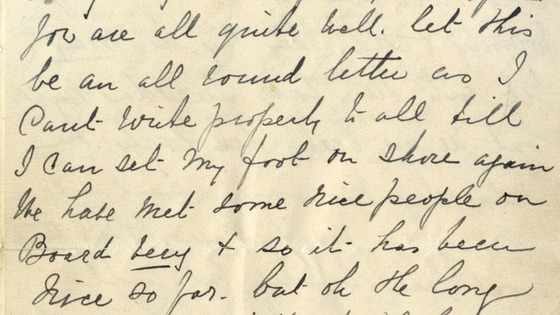 you are all quite well. let this
be an all round letter as I
Cant write properly to all till
I can set my foot on shore again
We have met some nice people on
Board very & so it has been
nice so far. but oh the long